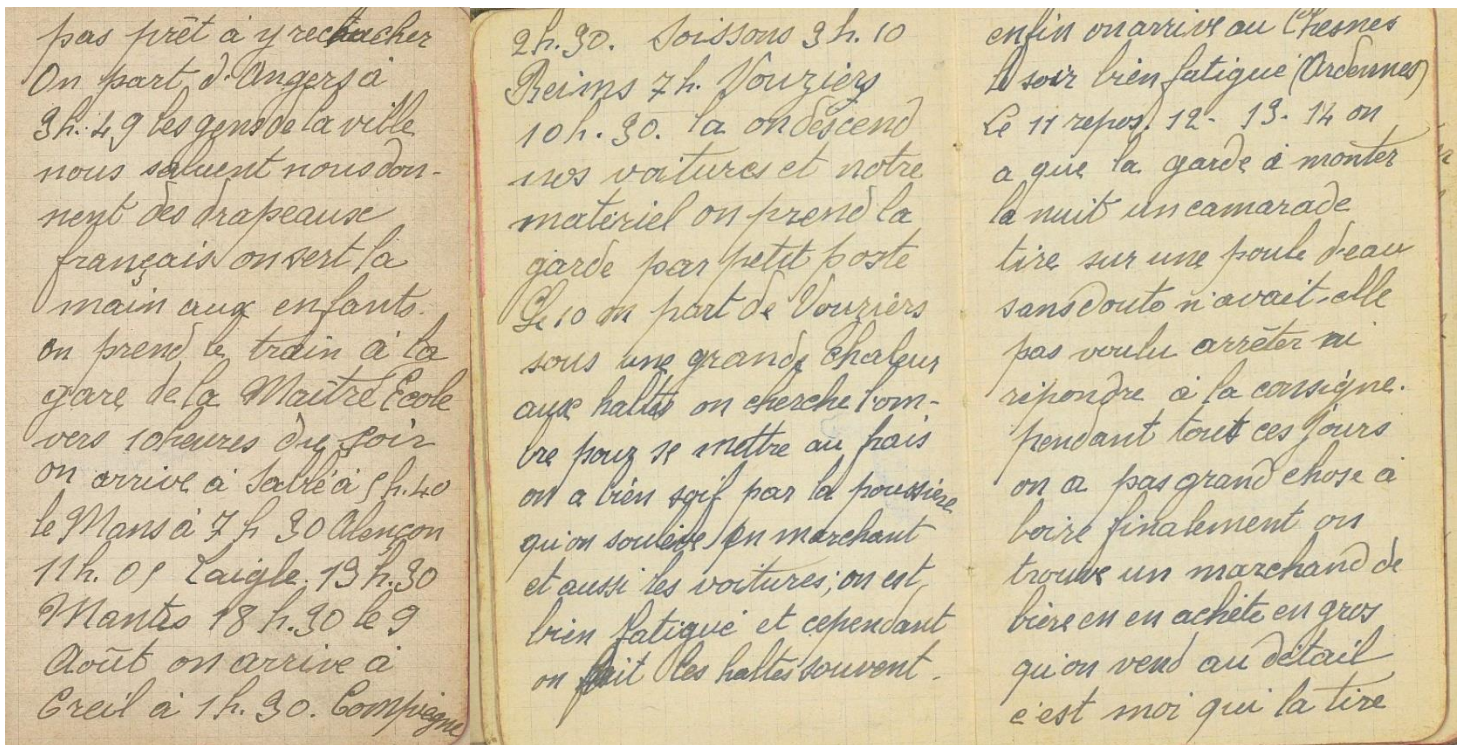 pas prêt à y recoucher
On part d'Angers à
3h:49 les gens de la ville
nous saluent nous don-
nent des drapeaux
français on sert la
main aux enfants.
on prend le train à la
gare de la Maître Ecole
vers 10 heures du soir
on arrive à Sablé à 5h.40
le Mans à 7 h 30 Alençon
11h.05 Laigle 13h.30
Mantes 18 h.30 le 9
Août on arrive à
Creil à 1h.30. Compiègne
2h.30. Soissons 3h.10
Reims 7h. Vouziers
10h.30. la on déscend
nos voitures et notre
matériel on prend la
garde par petit poste
Le 10 on part de Vouziers
sous une grande chaleur
aux haltes on cherche l'om-
bre pour se mettre au frais
on a bien soif par la poussière
qu'on soulève en marchant
et aussi les voitures; on est
bien fatigué et cependant
on fait les haltes souvent.
enfin on arrive au Chesnes
le soir bien fatigué (Ardennes)
Le 11 repos. 12 - 13 - 14 on
a que la garde à monter
la nuit un camarade
tire sur une poule d'eau
sans doute n'avait-elle
pas voulu arrêter ni
répondre à la consigne.
pendant tout ces jours
on a pas grand chose à
boire finalement on
trouve un marchand de
bière en en achète en gros
qu'on vend au détail
c'est moi qui la tire